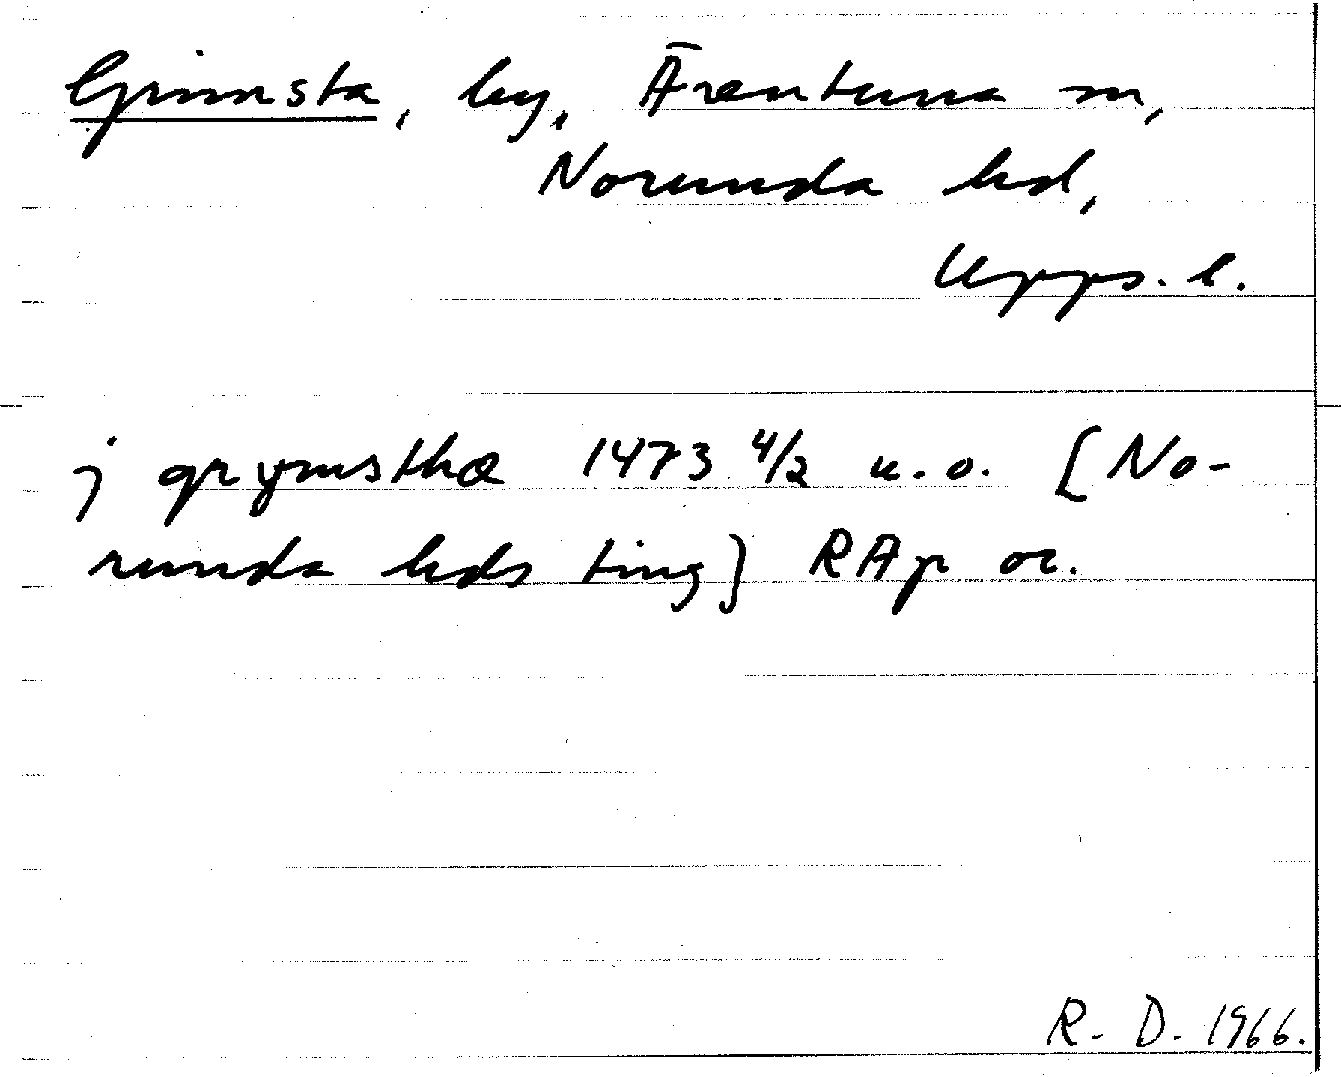 Grimsta, by, Ärentuna sn,
Norunda hd,
Upps. l.
j grymstha 1473 4/2 u. o. [No-
runda hds ting] RAp or.
R. D. 1966.